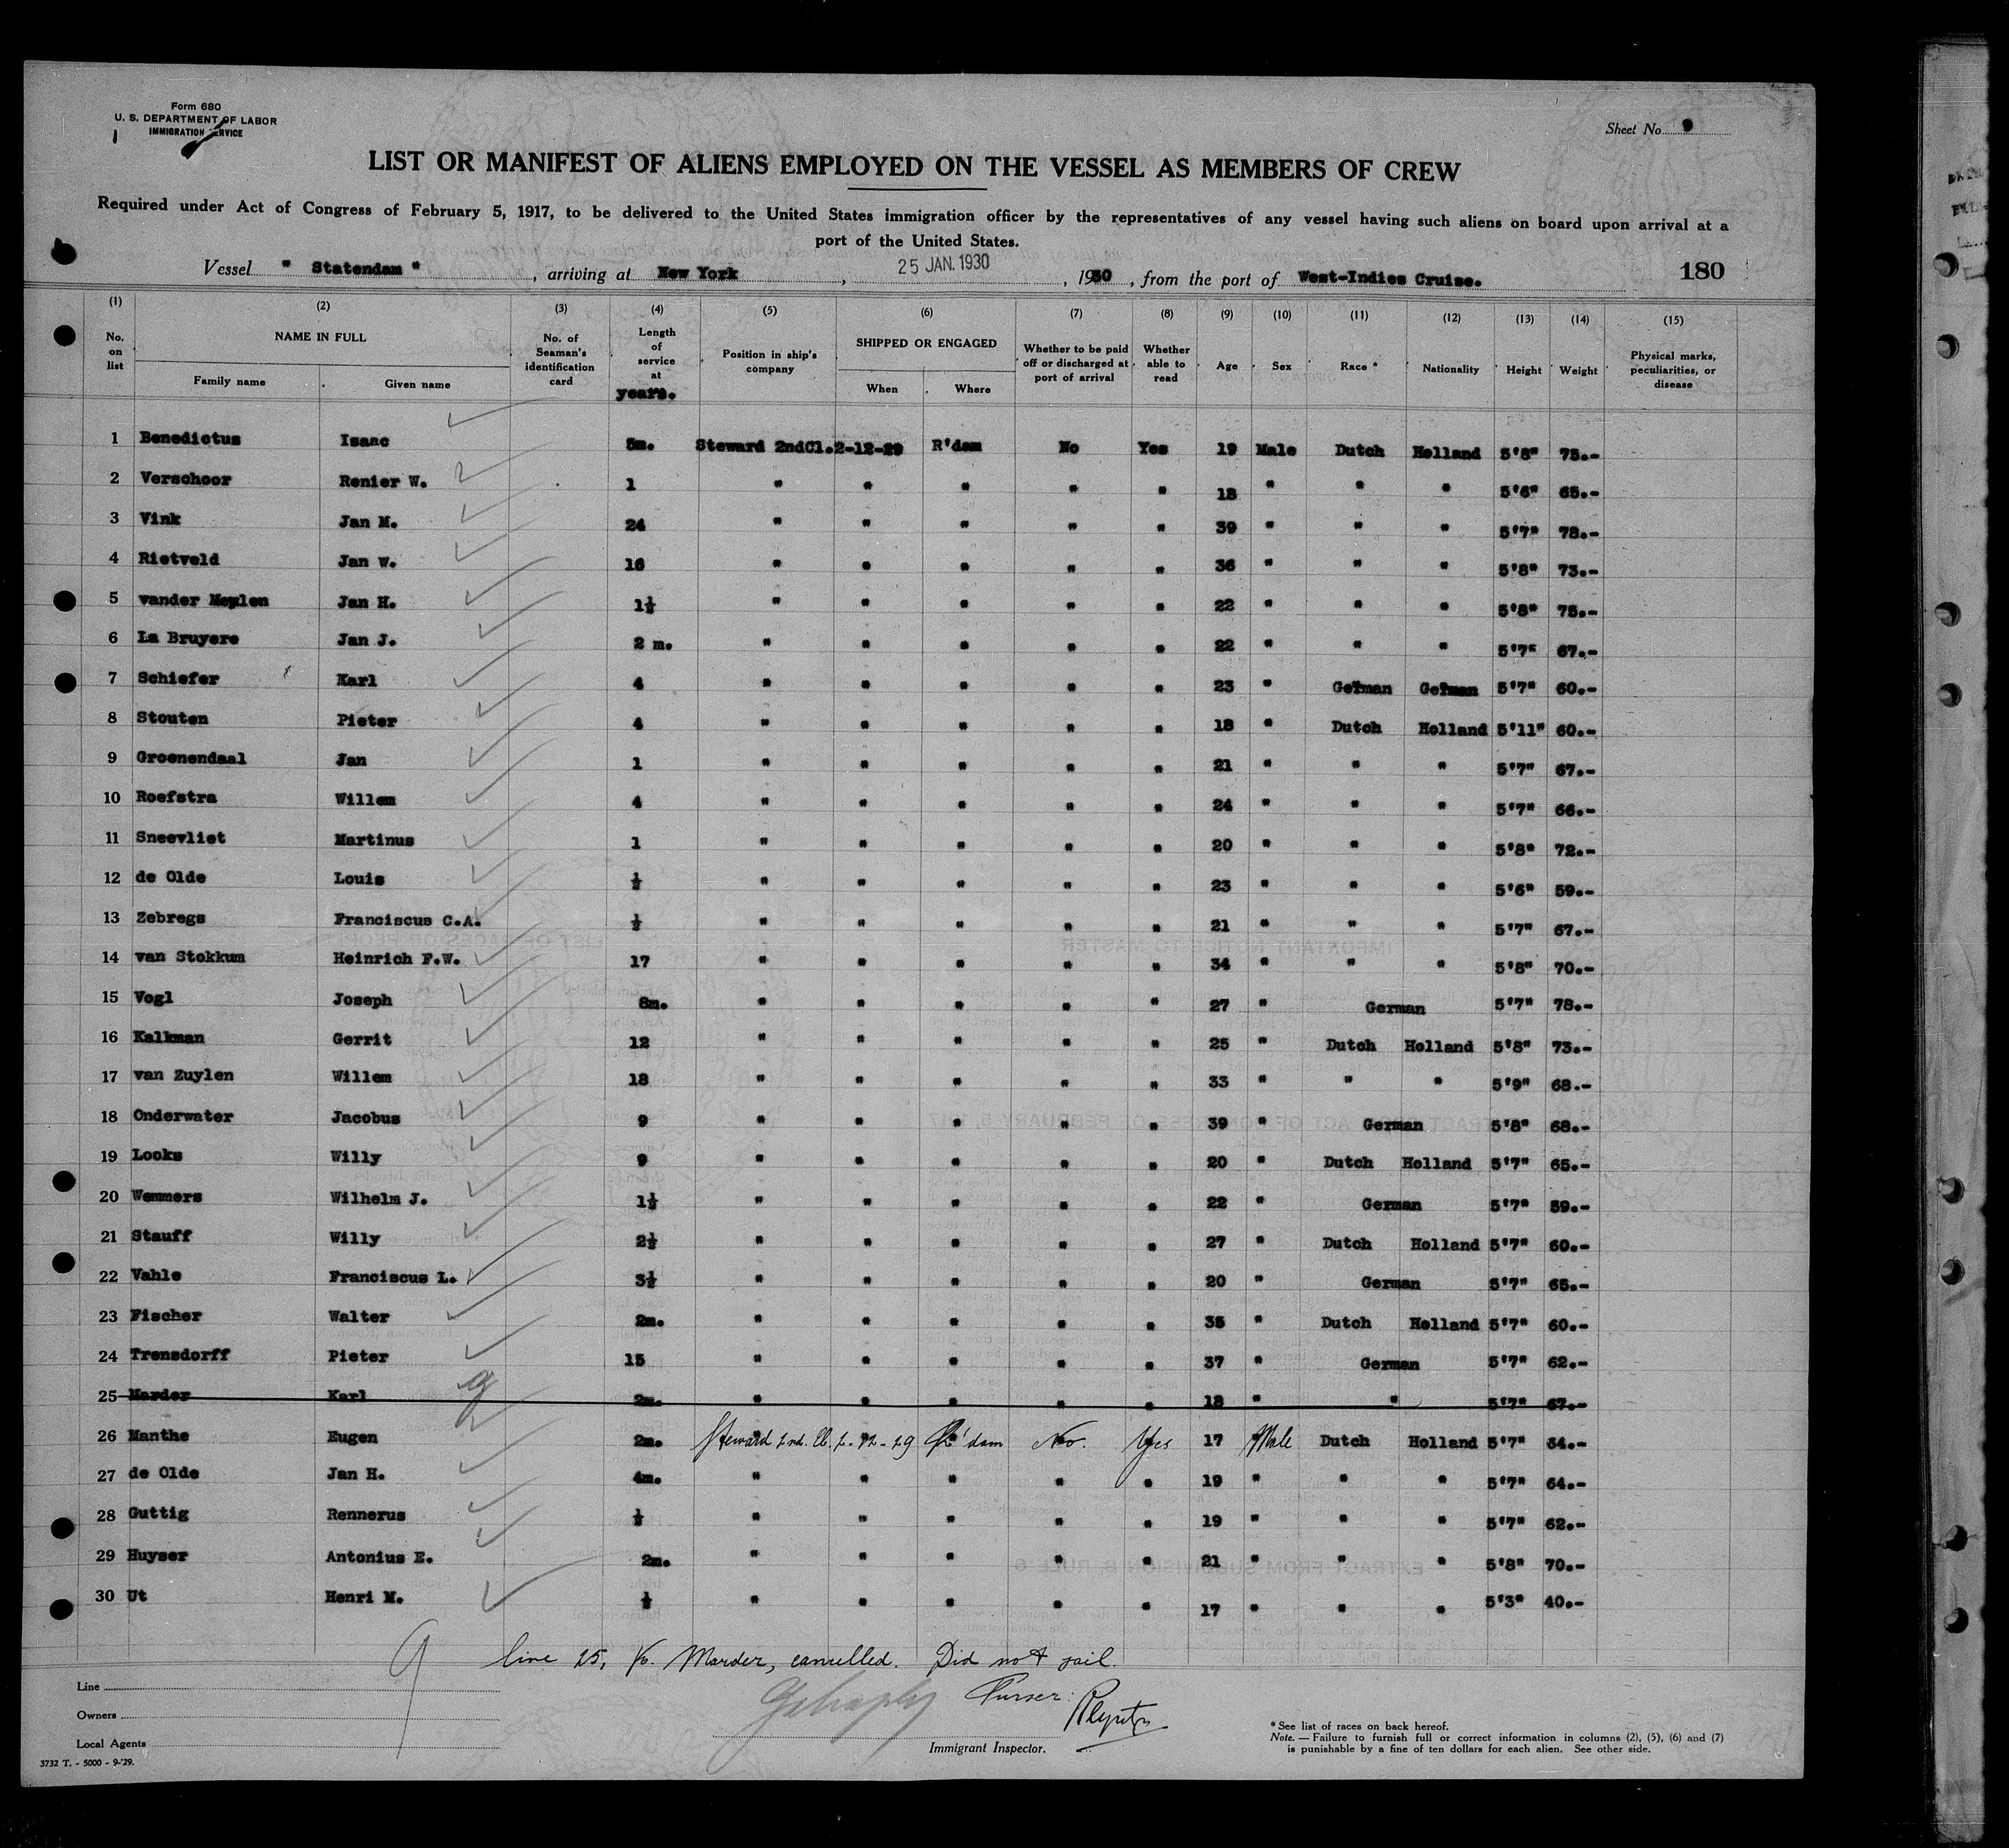 Form 680
U. S. DEPARTMENT OF LABOR
IMMIGRATION SERVICE
Sheet No. 9
LIST OR MANIFEST OF ALIENS EMPLOYED ON THE VESSEL AS MEMBERS OF CREW
Required under Act of Congress of February 5, 1917, to be delivered to the United States immigration officer by the representatives of any vessel having such aliens on board upon arrival at a
port of the United States.
Vessel " Statendam ", arriving at New York, 25 JAN. 1930, 1930, from the port of West-Indies Cruise. 180
(1) (2) (3) (4) (5) (6) (7) (8) (9) (10) (11) (12) (13) (14) (15)
No. on list NAME IN FULL Family name Given name No. of Seaman's identification card Length of service at years. Position in ship's company SHIPPED OR ENGAGED When Where Whether to be paid off or discharged at port of arrival Whether able to read Age Sex Race * Nationality Height Weight Physical marks, peculiarities, or disease
1 Benedictus Isaac 5m. Steward 2ndCl. 2-12-29 R'dam No Yes 19 Male Dutch Holland 5'8" 75.-
2 Verschoor Renier W. 1 " " " " " 18 " " " 5'6" 65.-
3 Vink Jan M. 24 " " " " " 39 " " " 5'7" 78.-
4 Rietveld Jan W. 16 " " " " " 36 " " " 5'8" 73.-
5 vander Meylen Jan H. 1½ " " " " " 22 " " " 5'8" 75.-
6 La Bruyere Jan J. 2 m. " " " " " 22 " " " 5'7" 67.-
7 Schiefer Karl 4 " " " " " 23 " German German 5'7" 60.-
8 Stouten Pieter 4 " " " " " 18 " Dutch Holland 5'11" 60.-
9 Groenendaal Jan 1 " " " " " 21 " " " 5'7" 67.-
10 Roefstra Willem 4 " " " " " 24 " " " 5'7" 66.-
11 Sneevliet Martinus 1 " " " " " 20 " " " 5'8" 72.-
12 de Olde Louis ½ " " " " " 23 " " " 5'6" 59.-
13 Zebregs Franciscus C.A. ½ " " " " " 21 " " " 5'7" 67.-
14 van Stokkum Heinrich F.W. 17 " " " " " 34 " " " 5'8" 70.-
15 Vogl Joseph 8m. " " " " " 27 " German 5'7" 78.-
16 Kalkman Gerrit 12 " " " " " 25 " Dutch Holland 5'8" 73.-
17 van Zuylen Willem 18 " " " " " 33 " " " 5'9" 68.-
18 Onderwater Jacobus 9 " " " " " 39 " German 5'8" 68.-
19 Looks Willy 9 " " " " " 20 " Dutch Holland 5'7" 65.-
20 Wemmers Wilhelm J. 1½ " " " " " 22 " German 5'7" 59.-
21 Stauff Willy 2½ " " " " " 27 " Dutch Holland 5'7" 60.-
22 Vahle Franciscus L. 3½ " " " " " 20 " German 5'7" 65.-
23 Fischer Walter 2m. " " " " " 35 " Dutch Holland 5'7" 60.-
24 Trensdorff Pieter 15 " " " " " 37 " German 5'7" 62.-
25 Marder Karl 2m. " " " " " 18 " " 5'7" 67.-
26 Manthe Eugen 2m. Steward 2nd. Cl. 2-12-29 R'dam No. Yes 17 Male Dutch Holland 5'7" 64.-
27 de Olde Jan H. 4m. " " " " " 19 " " " 5'7" 64.-
28 Guttig Rennerus ½ " " " " " 19 " " " 5'7" 62.-
29 Huyser Antonius E. 2m. " " " " " 21 " " " 5'8" 70.-
30 Ut Henri M. ½ " " " " " 17 " " " 5'3" 40.-
line 25, K. Marder, cancelled. Did not sail.
Purser:
Line
Owners
Local Agents
Immigrant Inspector.
3732 T. - 5000 - 9-'29.
* See list of races on back hereof.
Note. — Failure to furnish full or correct information in columns (2), (5), (6) and (7)
is punishable by a fine of ten dollars for each alien. See other side.